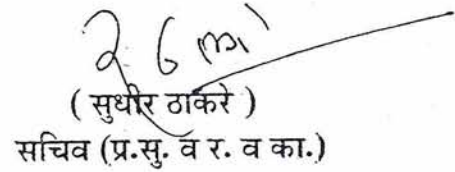 ( सुधीर ठाकरे )
सचिव (प्र.सु. व र. व का.)